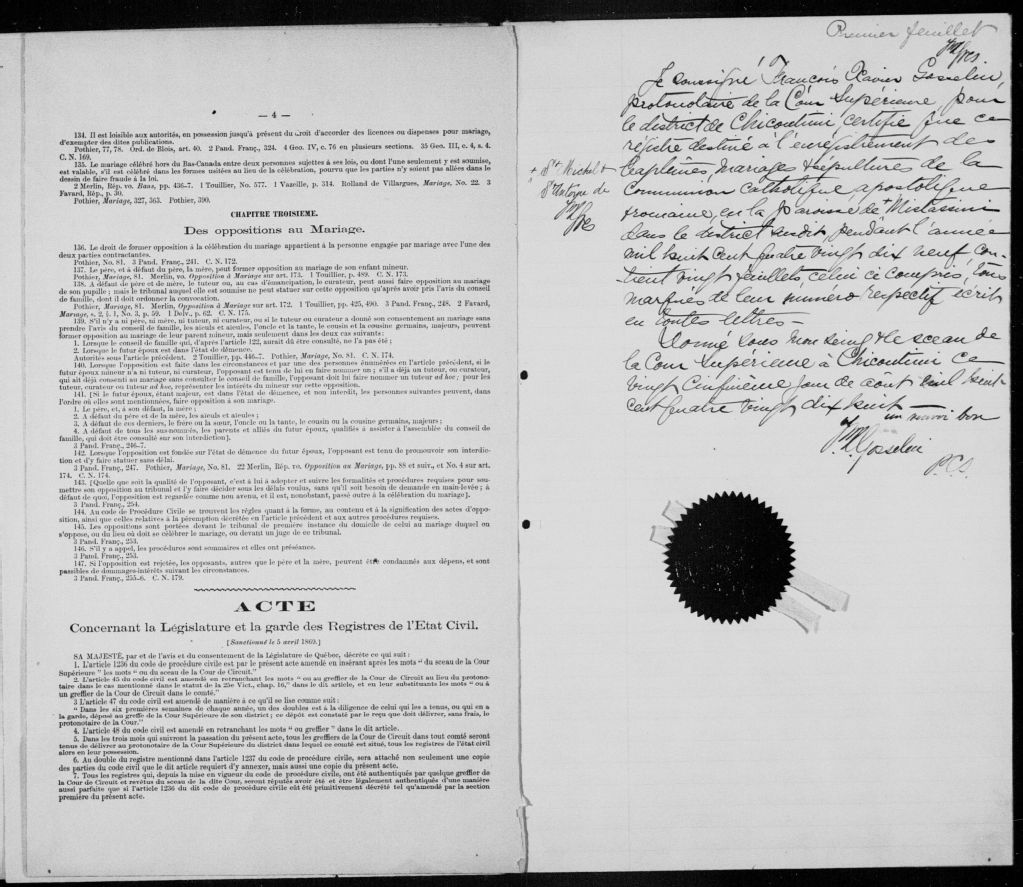 — 4 —
134. Il est loisible aux autorités, en possession jusqu'à présent du droit d'accorder des licences ou dispenses pour mariage,
d'exempter des dites publications.
Pothier, 77, 78. Ord. de Blois, art. 40. 2 Pand. Franç., 324. 4 Geo. IV, c. 76 en plusieurs sections. 35 Geo. III, c. 4, s. 4.
C. N. 169.
135. Le mariage célébré hors du Bas-Canada entre deux personnes sujettes à ses lois, ou dont l'une seulement y est soumise,
est valable, s'il est célébré dans les formes usitées au lieu de la célébration, pourvu que les parties n'y soient pas allées dans le
dessin de faire fraude à la loi.
2 Merlin, Rép. vo. Bans, pp. 436-7. 1 Touillier, No. 577. 1 Vazeille, p. 314. Rolland de Villargues, Mariage, No. 22. 3
Favard, Rép., p. 39.
Pothier, Mariage, 327, 363. Pothier, 390.
CHAPITRE TROISIEME.
Des oppositions au Mariage.
136. Le droit de former opposition à la célébration du mariage appartient à la personne engagée par mariage avec l'une des
deux parties contractantes.
Pothier, No. 81. 3 Pand. Franç., 241. C. N. 172.
137. Le père, et à défaut du père, la mère, peut former opposition au mariage de son enfant mineur.
Pothier, Mariage, 81. Merlin, vo. Opposition à Mariage sur art. 173. 1 Touillier, p. 489. C. N. 173.
138. A défaut de père et de mère, le tuteur ou, au cas d'émancipation, le curateur, peut aussi faire opposition au mariage
de son pupille ; mais le tribunal auquel elle est soumise ne peut statuer sur cette opposition qu'après avoir pris l'avis du conseil
de famille, dont il doit ordonner la convocation.
Pothier, Mariage, 81. Merlin, Opposition à Mariage sur art. 172. 1 Touillier, pp. 425, 490. 3 Pand. Franç., 248. 2 Favard,
Mariage, s. 2, § 1, No. 3, p. 59. 1 Delv., p. 62. C. N. 175.
139. S'il n'y a ni père, ni mère, ni tuteur, ni curateur, ou si le tuteur ou curateur a donné son consentement au mariage sans
prendre l'avis du conseil de famille, les aïeuls et aïeules, l'oncle et la tante, le cousin et la cousine germains, majeurs, peuvent
former opposition au mariage de leur parent mineur, mais seulement dans les deux cas suivants :
1. Lorsque le conseil de famille qui, d'après l'article 122, aurait dû être consulté, ne l'a pas été ;
2. Lorsque le futur époux est dans l'état de démence.
Autorités sous l'article précédent. 2 Touillier, pp. 446-7. Pothier, Mariage, No. 81. C. N. 174.
140. Lorsque l'opposition est faite dans les circonstances et par une des personnes énumérées en l'article précédent, si le
futur époux mineur n'a ni tuteur, ni curateur, l'opposant est tenu de lui en faire nommer un ; s'il a déjà un tuteur, ou curateur,
qui ait déjà consenti au mariage sans consulter le conseil de famille, l'opposant doit lui faire nommer un tuteur ad hoc ; pour les
tuteur, curateur ou tuteur ad hoc, représenter les intérêts du mineur sur cette opposition.
141. [Si le futur époux, étant majeur, est dans l'état de démence, et non interdit, les personnes suivantes peuvent, dans
l'ordre où elles sont mentionnées, faire opposition à son mariage.
1. Le père, et, à son défaut, la mère ;
2. A défaut du père et de la mère, les aïeuls et aïeules ;
3. A défaut de ces derniers, le frère ou la sœur, l'oncle ou la tante, le cousin ou la cousine germains, majeurs ;
4. A défaut de tous les sus-nommés, les parents et alliés du futur époux, qualifiés à assister à l'assemblée du conseil de
famille, qui doit être consulté sur son interdiction].
3 Pand. Franç., 246-7.
142. Lorsque l'opposition est fondée sur l'état de démence du futur époux, l'opposant est tenu de promouvoir son interdic-
tion et d'y faire statuer sans délai.
3 Pand. Franç., 247. Pothier, Mariage, No. 81. 22 Merlin, Rép. vo. Opposition au Mariage, pp. 88 et suiv., et No. 4 sur art.
174. C. N. 174.
143. [Quelle que soit la qualité de l'opposant, c'est à lui à adopter et suivre les formalités et procédures requises pour sou-
mettre son opposition au tribunal et l'y faire décider sous les délais voulus, sans qu'il soit besoin de demande en main-levée ; à
défaut de quoi, l'opposition est regardée comme non avenue, et il est, nonobstant, passé outre à la célébration du mariage].
3 Pand. Franç., 254.
144. Au code de Procédure Civile se trouvent les règles quant à la forme, au contenu et à la signification des actes d'oppo-
sition, ainsi que celles relatives à la péremption décrétée en l'article précédent et aux autres procédures requises.
145. Les oppositions sont portées devant le tribunal de première instance du domicile de celui au mariage duquel on
s'oppose, ou du lieu où doit se célébrer le mariage, ou devant un juge de ce tribunal.
3 Pand. Franç., 253.
146. S'il y a appel, les procédures sont sommaires et elles ont préséance.
3 Pand. Franç., 253.
147. Si l'opposition est rejetée, les opposants, autres que le père et la mère, peuvent être condamnés aux dépens, et sont
passibles de dommages-intérêts suivant les circonstances.
3 Pand. Franç., 255-6. C. N. 179.
ACTE
Concernant la Législature et la garde des Registres de l'Etat Civil.
[Sanctionné le 5 avril 1869.]
SA MAJESTÉ, par et de l'avis et du consentement de la Législature de Québec, décrète ce qui suit :
1. L'article 1236 du code de procédure civile est par le présent acte amendé en insérant après les mots " du sceau de la Cour
Supérieure " les mots " ou du sceau de la Cour de Circuit."
2. L'article 45 du code civil est amendé en retranchant les mots " ou au greffier de la Cour de Circuit au lieu du protono-
taire dans le cas mentionné dans le statut de la 25e Vict., chap. 16," dans le dit article, et en leur substituants les mots " ou à
un greffier de la Cour de Circuit dans le comté."
3 L'article 47 du code civil est amendé de manière à ce qu'il se lise comme suit :
" Dans les six premières semaines de chaque année, un des doubles est à la diligence de celui qui les a tenus, ou qui en a
la garde, déposé au greffe de la Cour Supérieure de son district ; ce dépôt est constaté par le reçu que doit délivrer, sans frais, le
protonotaire de la Cour."
4. L'article 48 du code civil est amendé en retranchant les mots " ou greffier " dans le dit article.
5. Dans les trois mois qui suivront la passation du présent acte, tous les greffiers de la Cour de Circuit dans tout comté seront
tenus de délivrer au protonotaire de la Cour Supérieure du district dans lequel ce comté est situé, tous les registres de l'état civil
alors en leur possession.
6. Au double du registre mentionné dans l'article 1237 du code de procédure civile, sera attaché non seulement une copie
des parties du code civil que le dit article requiert d'y annexer, mais aussi une copie du présent acte.
7. Tous les registres qui, depuis la mise en vigueur du code de procédure civile, ont été authentiqués par quelque greffier de
la Cour de Circuit et revêtus du sceau de la dite Cour, seront réputés avoir été et être légalement authentiqués d'une manière
aussi parfaite que si l'article 1236 du dit code de procédure civile eût été primitivement décrété tel qu'amendé par la section
première du présent acte.
Premier feuillet
Je soussigné François Xavier Gosselin,
protonotaire de la Cour Supérieure, pour
le district de Chicoutimi, certifie que ce
régistre destiné à l'enregistrement des
Baptêmes, Mariages & sépultures de la
Communion catholique, apostolique
& romaine, en la paroisse de + Mistassini
dans le district susdit pendant l'année
mil huit cent quatre vingt dix neuf, con-
tient vingt feuillets, celui ci compris, tous
marqués de leur numéro respectif écrit
en toutes lettres —
+ St Michel +
Donné sous mon seing & le sceau de
la Cour Supérieure à Chicoutimi ce
vingt cinquième jour de août mil huit
cent quatre vingt dix huit
Gosselin
P.C.S.